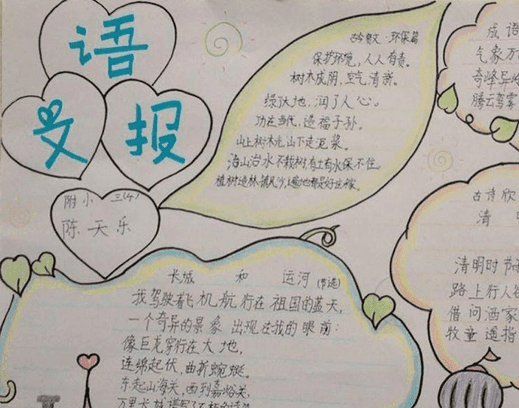 语
文
报
附小 三(4)
陈天乐
古今贤文·环保篇
保护环境，人人有责。
树木成阴，空气清新。
绿了大地，润了人心。
功在当代，造福子孙。
山上树木光，山下走泥浆。
治山治水不栽树，有土有水保不住。
植树造林，遍地都是好庄稼。
成语
气象万
奇峰异
腾云驾雾
古诗欣
清
清明时节雨
路上行人
借问酒家
牧童遥指
长城 和 运河(节选)
我驾驶着飞机航行在祖国的蓝天，
一个奇异的景象出现在我的眼前：
像巨龙穿行在大地，
连绵起伏，曲折蜿蜒。
东起山海关，西到嘉峪关，
万里长城